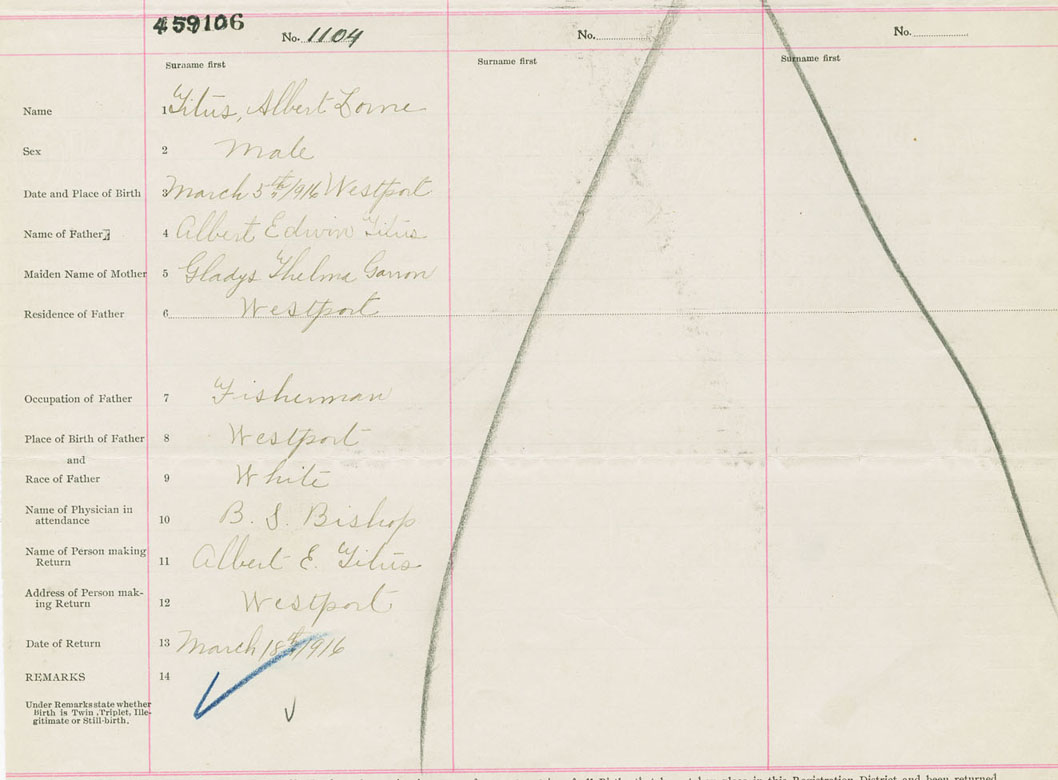 459106
No. 1104
No.
No.
Surname first
Surname first
Surname first
Name 1 Titus, Albert Lorne
Sex 2 Male
Date and Place of Birth 3 March 5th 1916 Westport
Name of Father 4 Albert Edwin Titus
Maiden Name of Mother 5 Gladys Thelma Garron
Residence of Father 6 Westport
Occupation of Father 7 Fisherman
Place of Birth of Father 8 Westport
and
Race of Father 9 White
Name of Physician in
attendance 10 B. S. Bishop
Name of Person making
Return 11 Albert E. Titus
Address of Person mak-
ing Return 12 Westport
Date of Return 13 March 18th 1916
REMARKS 14
Under Remarks state whether
Birth is Twin, Triplet, Ille-
gitimate or Still-birth.